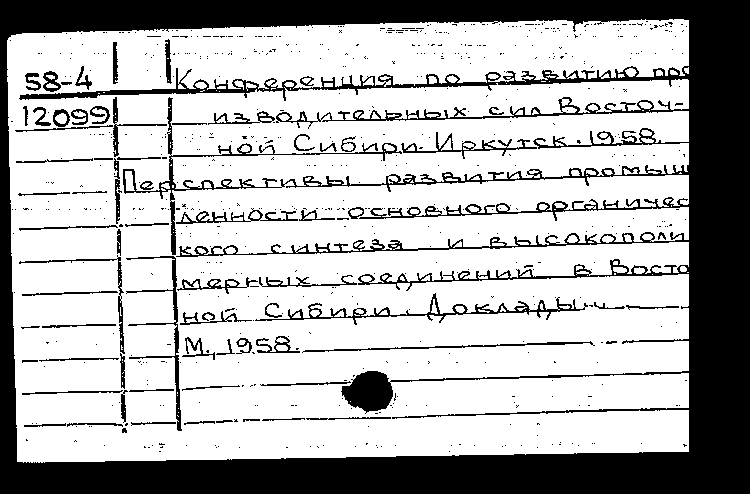 58-4 Конференция по развитию про
12099 изводительных сил Восточ-
ной Сибири. Иркутск. 1958.
Перспективы развития промыш
ленности основного органичес
кого синтеза и высокополи
мерных соединений в Восто
ной Сибири. Доклады...
М., 1958.